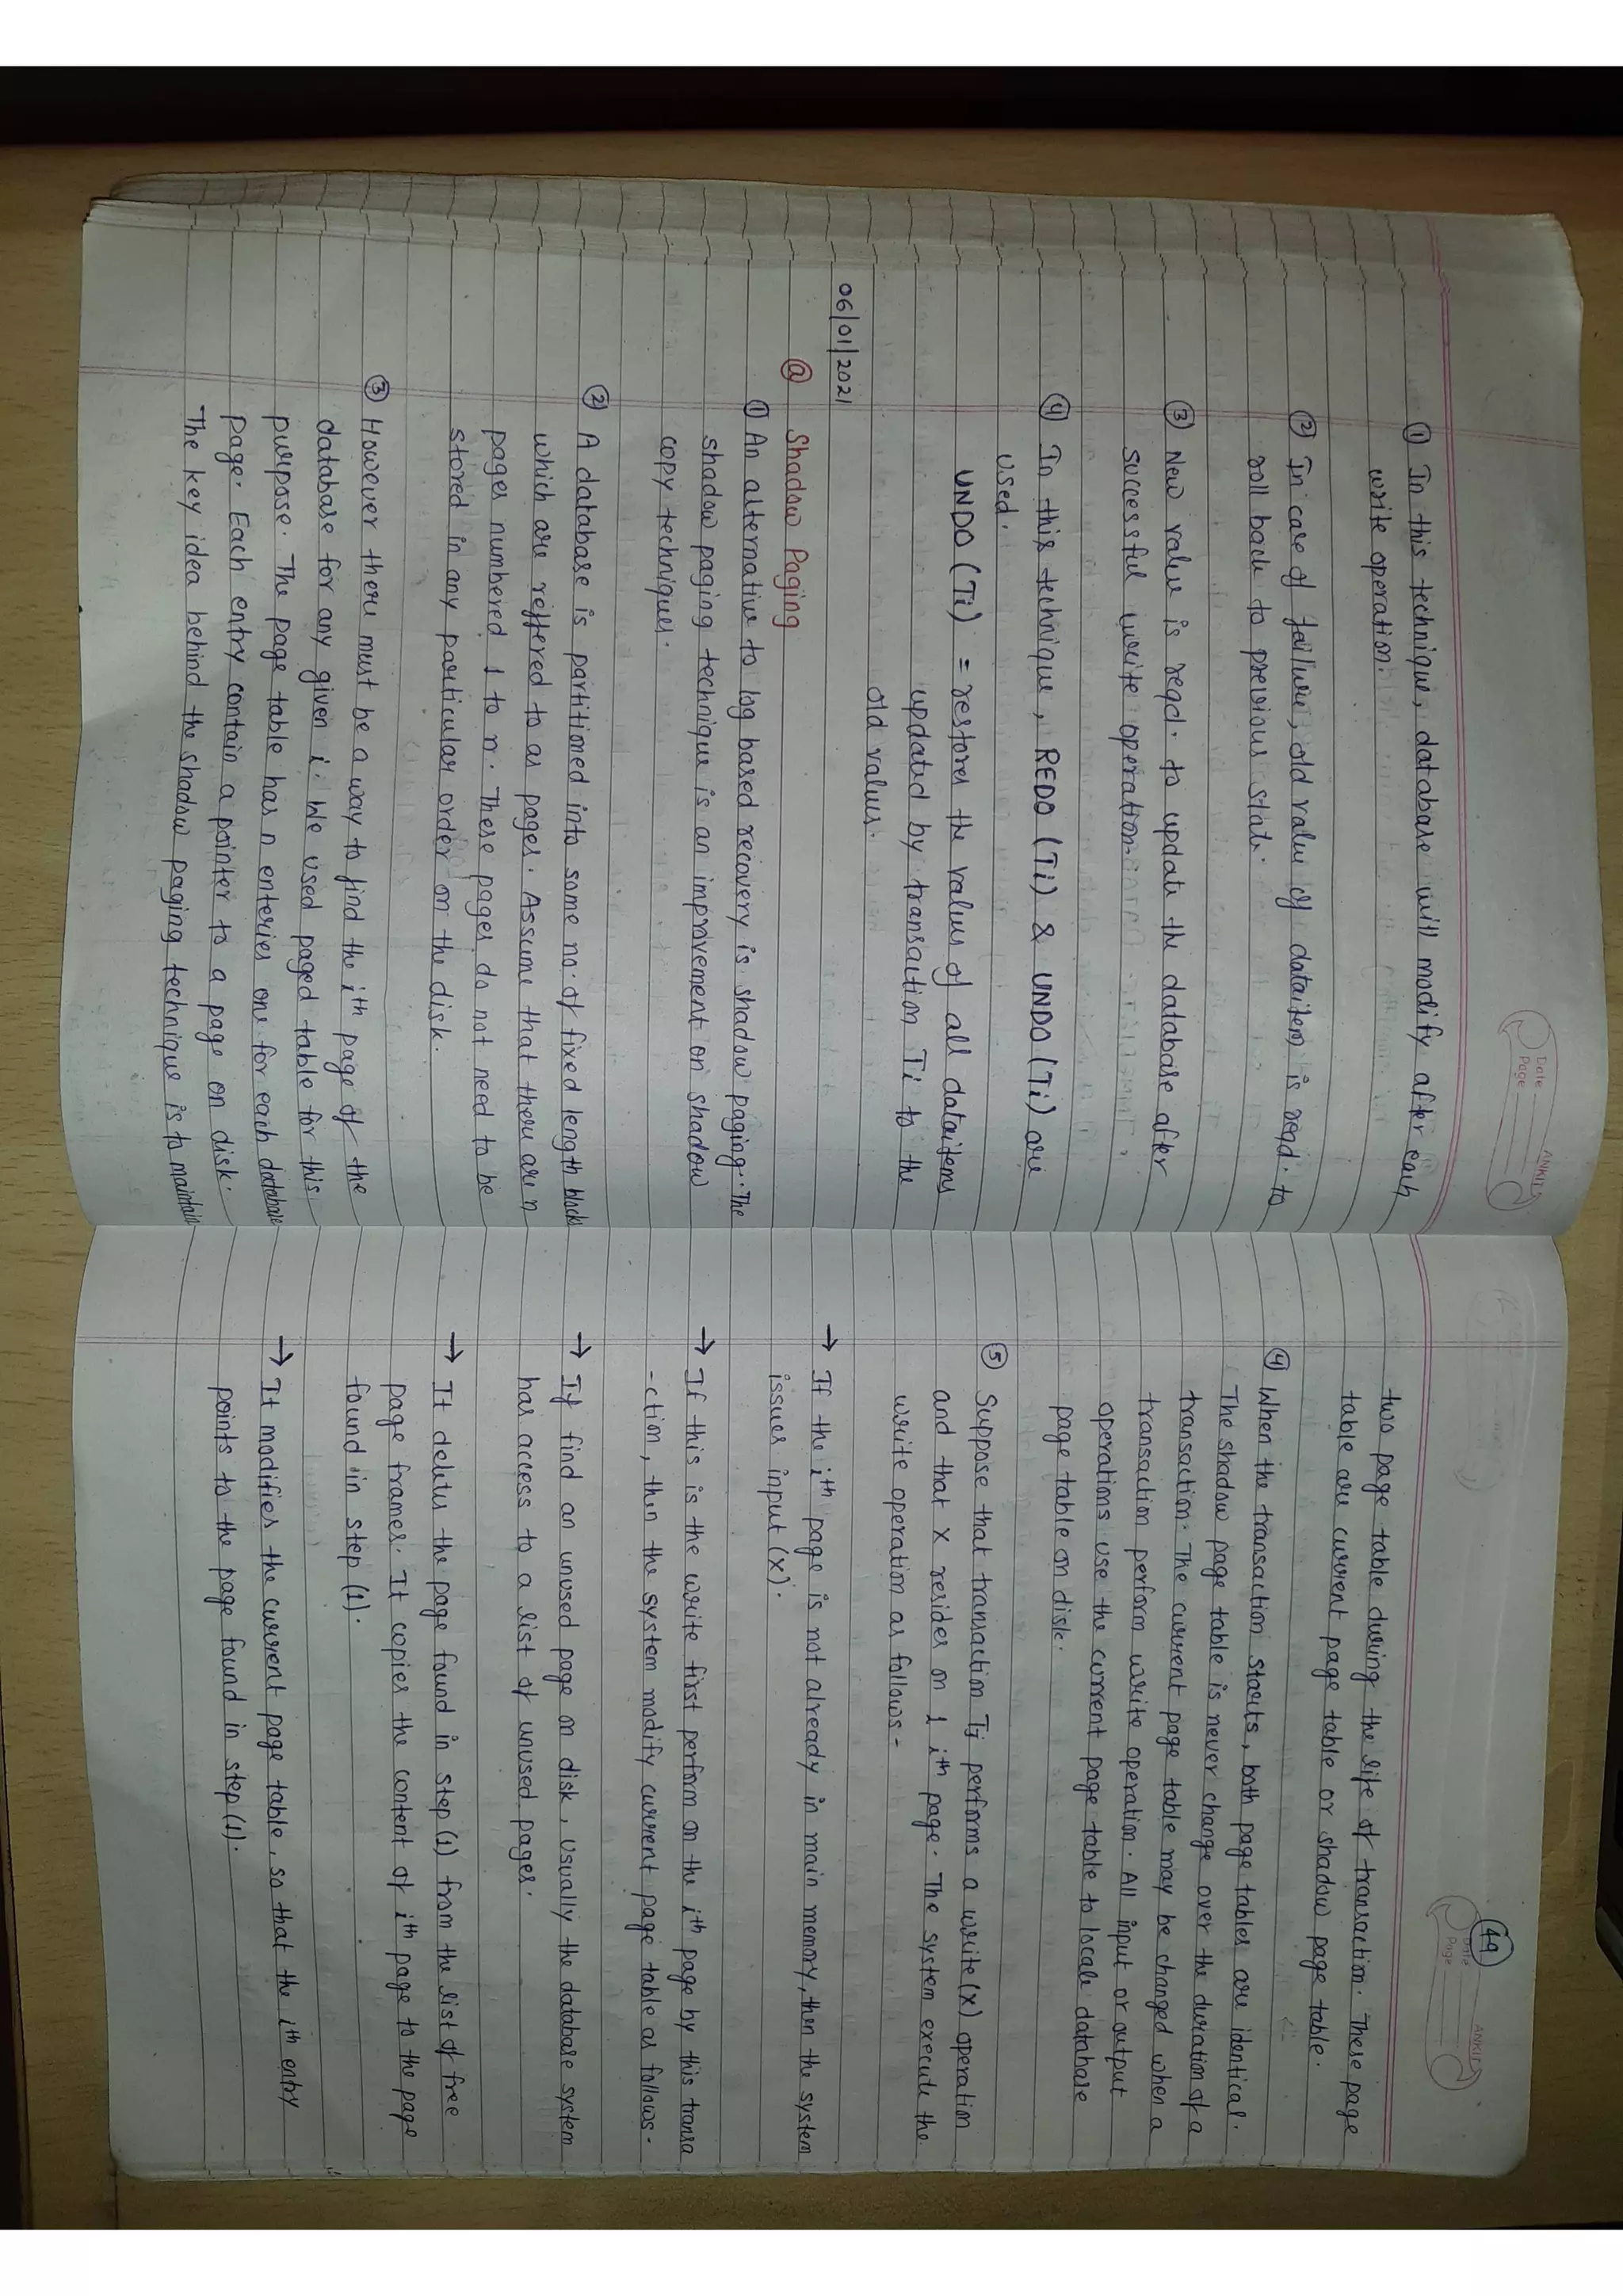 Date
Page
ANKIT
① In this technique, database will modify after each
write operation.
② In case of failure, old value of dataitem is reqd. to
roll back to previous state.
③ New value is reqd. to update the database after
successful write operation.
④ In this technique, REDO (Ti) & UNDO (Ti) are
used.
UNDO (Ti) = restores the values of all dataitems
updated by transaction Ti to the
old values.
06/01/2021
@ Shadow Paging
① An alternative to log based recovery is shadow paging. The
shadow paging technique is an improvement on shadow
copy techniques.
② A database is partitioned into some no. of fixed length blocks
which are reffered to as pages. Assume that there are n
pages numbered 1 to n. These pages do not need to be
stored in any particular order on the disk.
③ However there must be a way to find the ith page of the
database for any given i. We used paged table for this
purpose. The page table has n enteries one for each database
page. Each entry contain a pointer to a page on disk.
The key idea behind the shadow paging technique is to maintain
49
Date
Page
ANKIT
two page table during the life of transaction. These page
table are current page table or shadow page table.
④ When the transaction starts, both page tables are identical.
The shadow page table is never change over the duration of a
transaction. The current page table may be changed when a
transaction perform write operation. All input or output
operations use the current page table to locate database
page table on disk.
⑤ Suppose that transaction Tj performs a write (x) operation
and that x resides on 1 ith page. The system execute the
write operation as follows -
→ If the ith page is not already in main memory, then the system
issues input (x).
→ If this is the write first perform on the ith page by this transa
-ction, then the system modify current page table as follows -
→ If find an unused page on disk, usually the database system
has access to a list of unused pages.
→ It deletes the page found in step (1) from the list of free
page frames. It copies the content of ith page to the page
found in step (1).
→ It modifies the current page table, so that the ith entry
points to the page found in step (1).